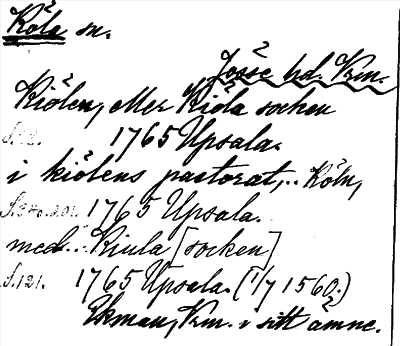 Köla sn.
Jösse hd. Vrm.
Kiölen, eller Kiöla socken
1765 Upsala.
i kiölens pastorat, .. Köln,
1765 Upsala.
med .. Kiula [socken]
S. 121. 1765 Upsala. (1/7 1560.)
Ekman, Vrm. i sitt ämne.